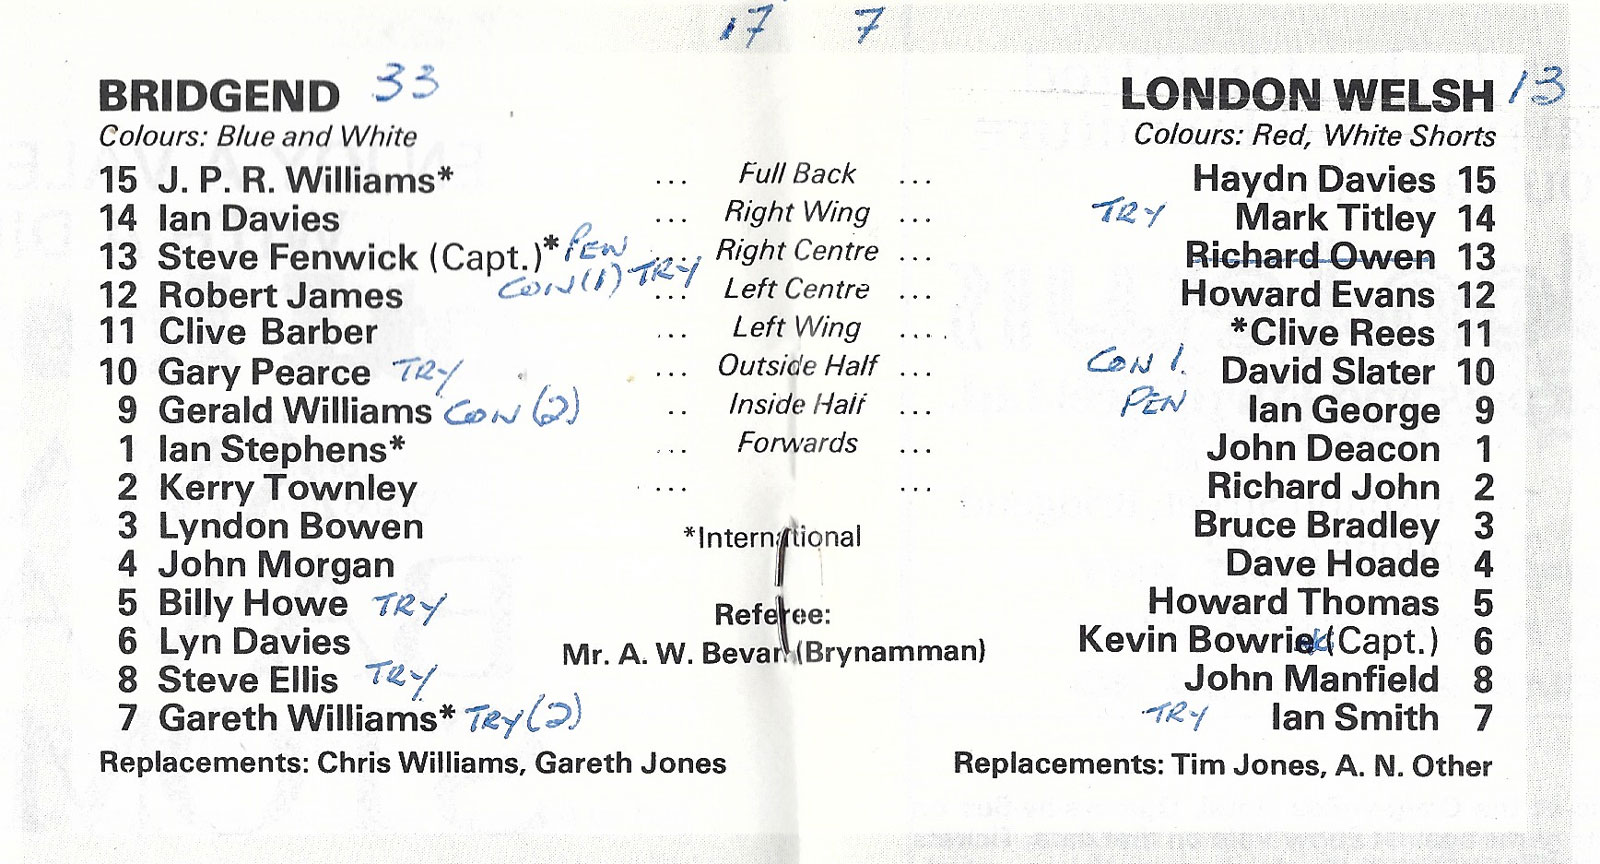 17 7
BRIDGEND 33 LONDON WELSH 13
Colours: Blue and White Colours: Red, White Shorts
15 J. P. R. Williams* ... Full Back ... Haydn Davies 15
14 Ian Davies ... Right Wing ... TRY Mark Titley 14
13 Steve Fenwick (Capt.)* PEN ... Right Centre ... Richard Owen 13
CON(1) TRY
12 Robert James ... Left Centre ... Howard Evans 12
11 Clive Barber ... Left Wing .... *Clive Rees 11
10 Gary Pearce TRY ... Outside Half ... CON 1. David Slater 10
9 Gerald Williams CON (2) .. Inside Half ... PEN Ian George 9
1 Ian Stephens* ... Forwards ... John Deacon 1
2 Kerry Townley ... ... Richard John 2
3 Lyndon Bowen *International Bruce Bradley 3
4 John Morgan Dave Hoade 4
5 Billy Howe TRY Referee: Howard Thomas 5
6 Lyn Davies Mr. A. W. Bevan (Brynamman) Kevin Bowrie (Capt.) 6
8 Steve Ellis TRY John Manfield 8
7 Gareth Williams* TRY (2) TRY Ian Smith 7
Replacements: Chris Williams, Gareth Jones Replacements: Tim Jones, A. N. Other